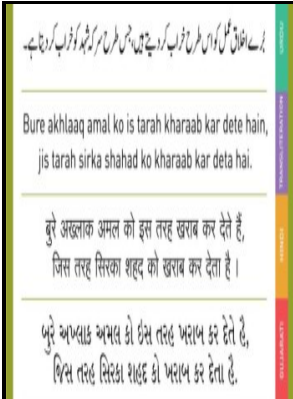 بُرے اخلاق عمل کو اس طرح خراب کر دیتے ہیں، جس طرح سرکہ شہد کو خراب کر دیتا ہے۔
URDU
Bure akhlaaq amal ko is tarah kharaab kar dete hain,
jis tarah sirka shahad ko kharaab kar deta hai.
TRANSLITERATION
बुरे अख्लाक अमल को इस तरह खराब कर देते हैं,
जिस तरह सिरका शहद को खराब कर देता है ।
HINDI
બુરે અખ્લાક અમલ કો ઇસ તરહ ખરાબ કર દેતે હૈ,
જિસ તરહ સિરકા શહદ કો ખરાબ કર દેતા હૈ.
GUJARATI